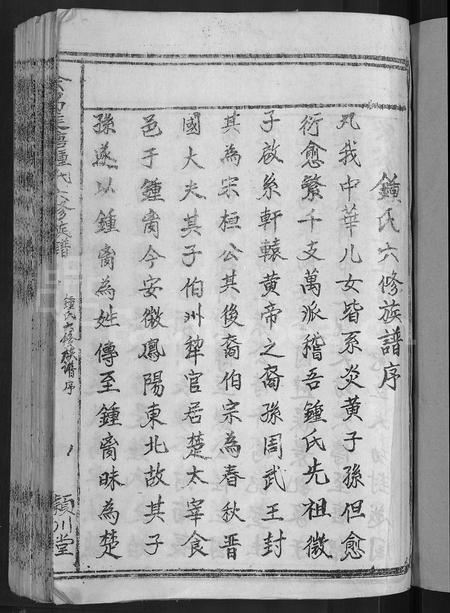 鍾氏六修族譜序
凡我中華儿女皆系炎黃子孫但愈
衍愈繁千支萬派稽吾鍾氏先祖微
子啟系軒轅黃帝之裔孫周武王封
其為宋桓公其後裔伯宗為春秋晋
國大夫其子伯州犂官居楚太宰食
邑于鍾离今安徽鳳陽東北故其子
孫遂以鍾离為姓傳至鍾离昧為楚
鍾氏六修族譜
鍾氏六修族譜序
1
潁川堂